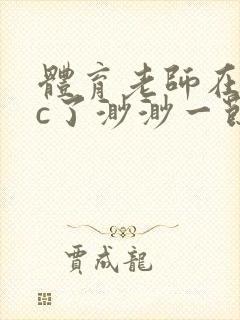 體育老師在
c了渺渺一
賈成龍